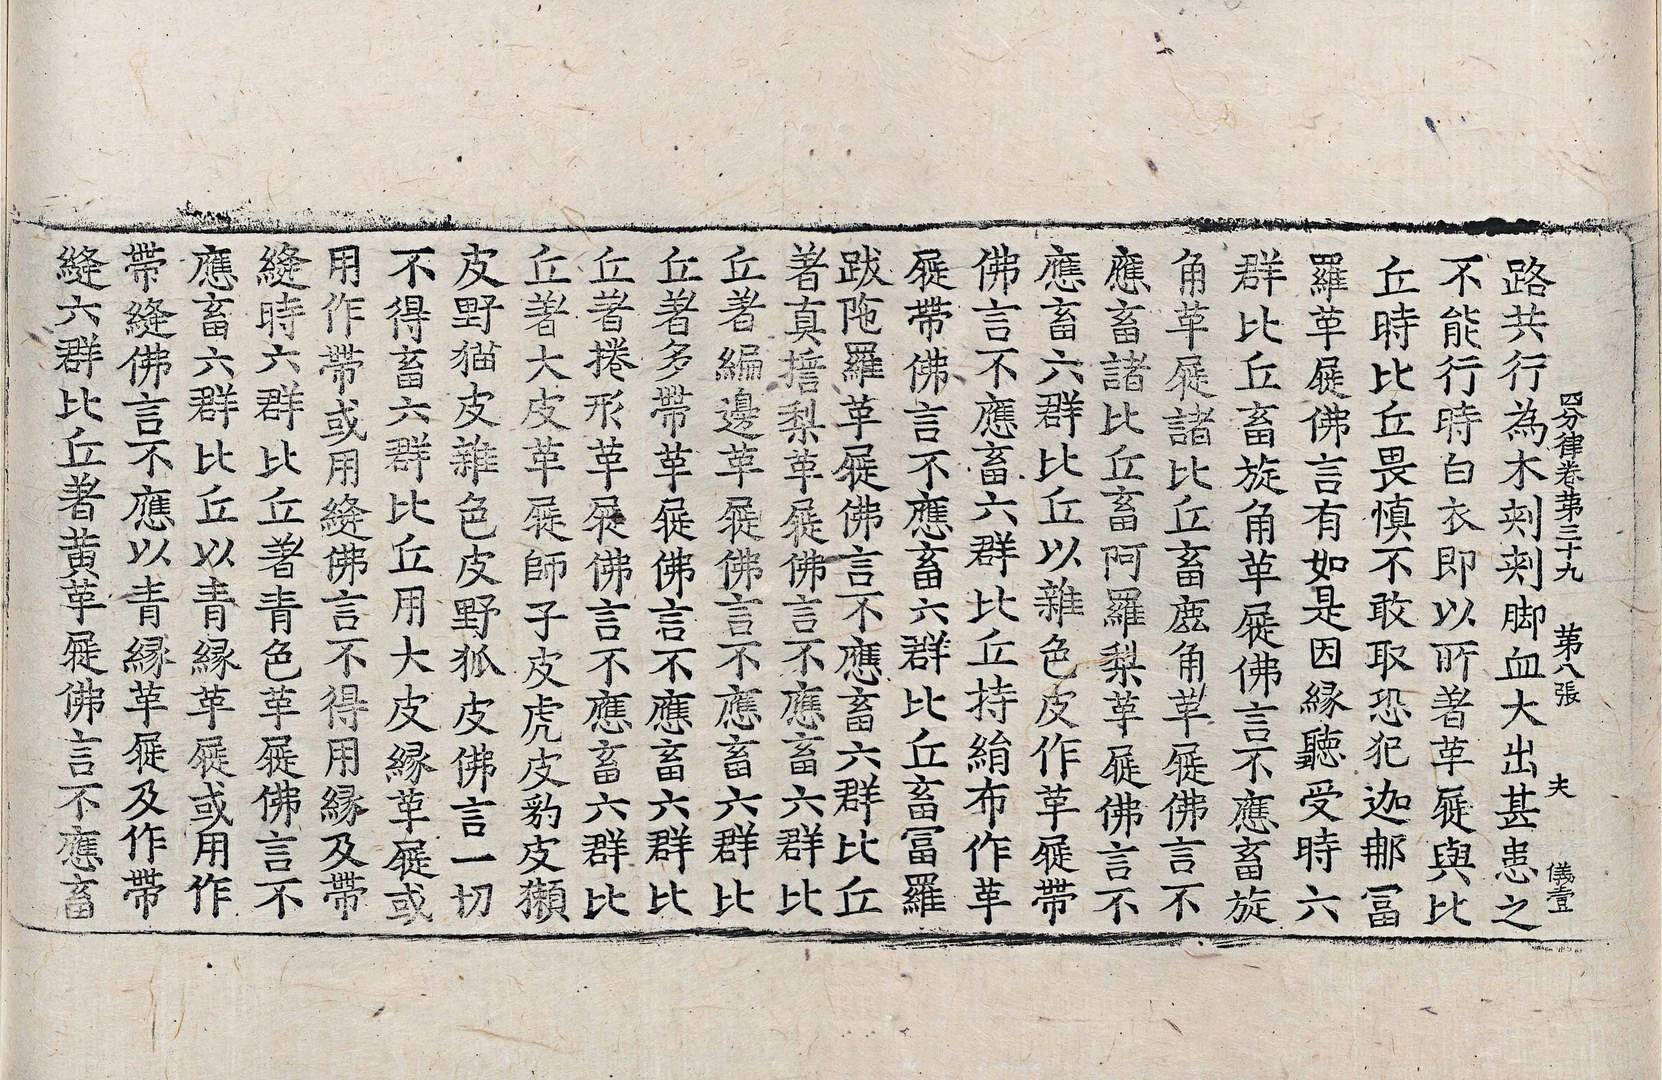 四分律卷第三十九 第八張 夫 儀壹
路共行為木刺刺脚血大出甚患之
不能行時白衣即以所著革屣與比
丘時比丘畏慎不敢取恐犯迦那冨
羅革屣佛言有如是因縁聽受時六
群比丘畜旋角革屣佛言不應畜旋
角革屣諸比丘畜鹿角革屣佛言不
應畜諸比丘畜阿羅梨革屣佛言不
應畜六群比丘以雜色皮作革屣帶
佛言不應畜六群比丘持絹布作革
屣帶佛言不應畜六群比丘畜冨羅
跋陁羅革屣佛言不應畜六群比丘
著真誓梨革屣佛言不應畜六群比
丘著編邊革屣佛言不應畜六群比
丘著多帶革屣佛言不應畜六群比
丘著捲形革屣佛言不應畜六群比
丘著大皮革屣師子皮虎皮豹皮獺
皮野猫皮雜色皮野狐皮佛言一切
不得畜六群比丘用大皮縁革屣或
用作帶或用縫佛言不得用縁及帶
縫時六群比丘著青色革屣佛言不
應畜六群比丘以青縁革屣或用作
帶縫佛言不應以青縁革屣及作帶
縫六群比丘著黃革屣佛言不應畜